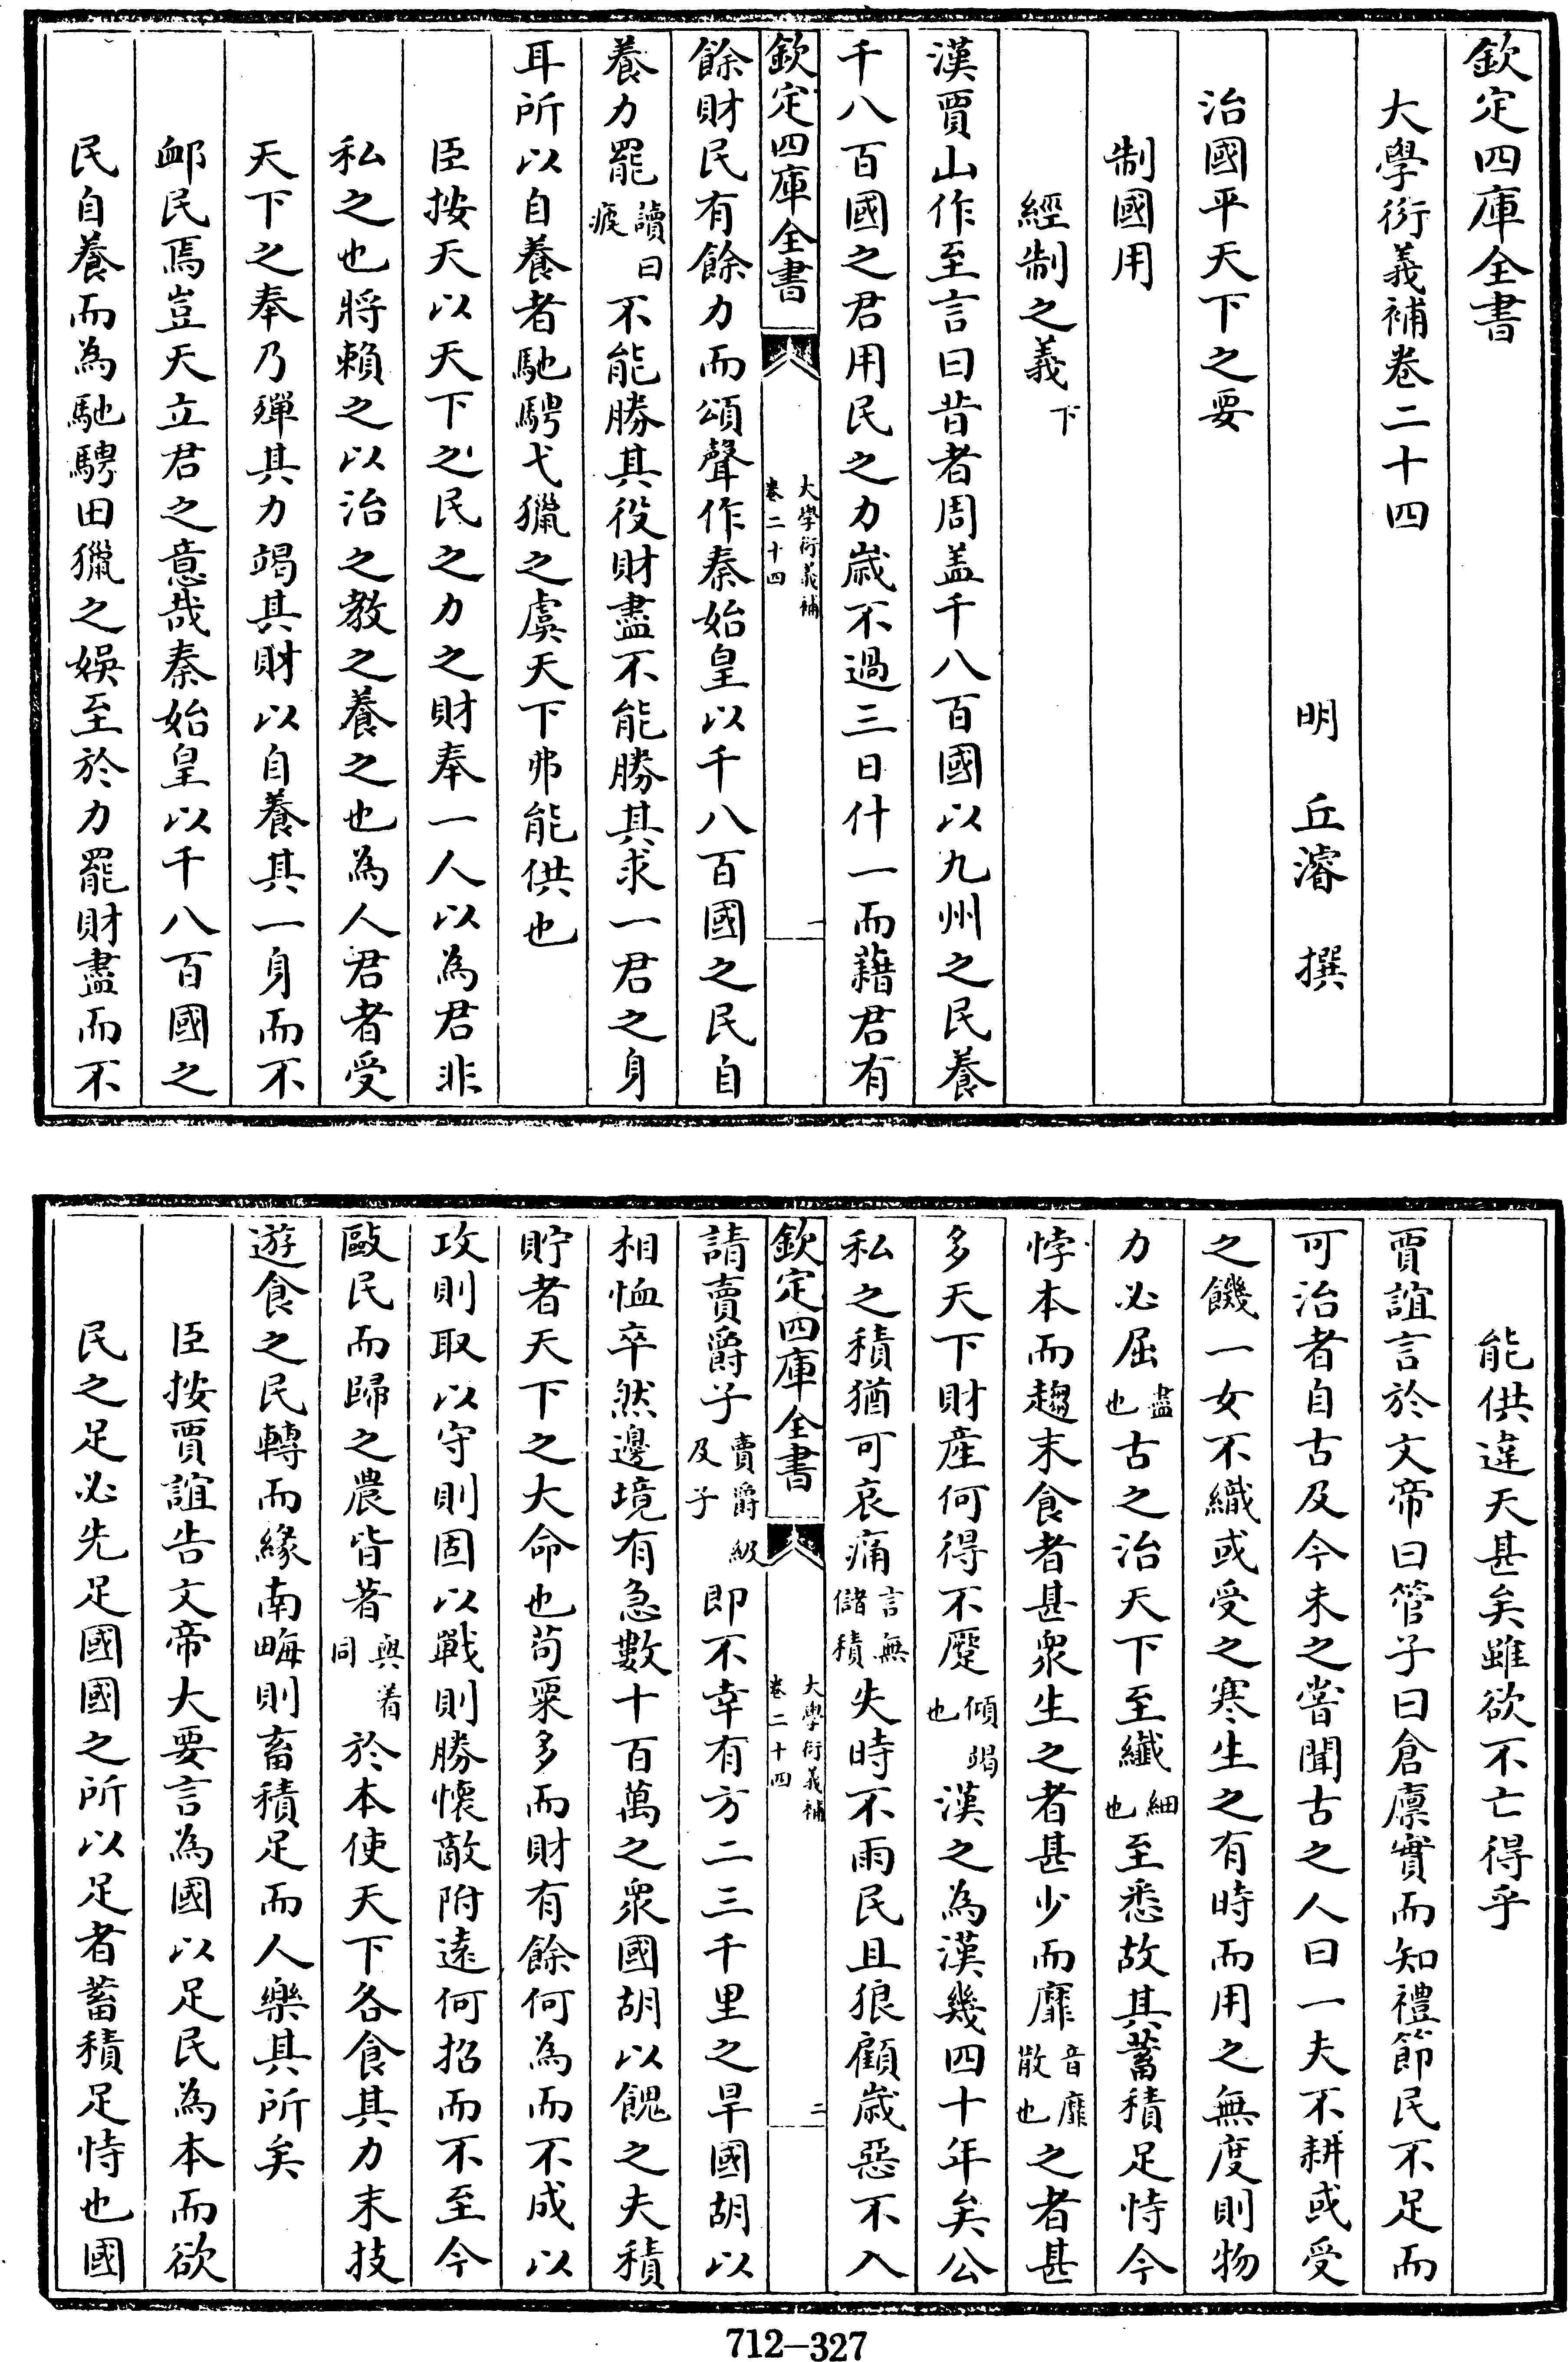 欽定四庫全書
大學衍義補卷二十四
明 丘濬 撰
治國平天下之要
制國用
經制之義下
漢賈山作至言曰昔者周盖千八百國以九州之民養
千八百國之君用民之力歲不過三日什一而藉君有
欽定四庫全書
大學衍義補
卷二十四
一
餘財民有餘力而頌聲作秦始皇以千八百國之民自
養力罷讀曰疲不能勝其役財盡不能勝其求一君之身
耳所以自養者馳騁弋獵之虞天下弗能供也
臣按天以天下之民之力之財奉一人以為君非
私之也將賴之以治之教之養之也為人君者受
天下之奉乃殫其力竭其財以自養其一身而不
䘏民焉豈天立君之意哉秦始皇以千八百國之
民自養而為馳騁田獵之娛至於力罷財盡而不
能供違天甚矣雖欲不亡得乎
賈誼言於文帝曰管子曰倉廪實而知禮節民不足而
可治者自古及今未之嘗聞古之人曰一夫不耕或受
之饑一女不織或受之寒生之有時而用之無度則物
力必屈盡也古之治天下至纖細也至悉故其蓄積足恃今
悖本而趨末食者甚衆生之者甚少而靡音靡散也之者甚
多天下財産何得不蹷傾竭也漢之為漢幾四十年矣公
私之積猶可哀痛言無儲積失時不雨民且狼顧歲惡不入
欽定四庫全書
大學衍義補
卷二十四
二
請賣爵子賣爵級及子即不幸有方二三千里之旱國胡以
相恤卒然邊境有急數十百萬之衆國胡以餽之夫積
貯者天下之大命也苟粟多而財有餘何為而不成以
攻則取以守則固以戰則勝懷敵附遠何招而不至今
敺民而歸之農皆著與着同於本使天下各食其力末技
遊食之民轉而緣南畮則畜積足而人樂其所矣
臣按賈誼告文帝大要言為國以足民為本而欲
民之足必先足國國之所以足者蓄積足恃也國
712-327